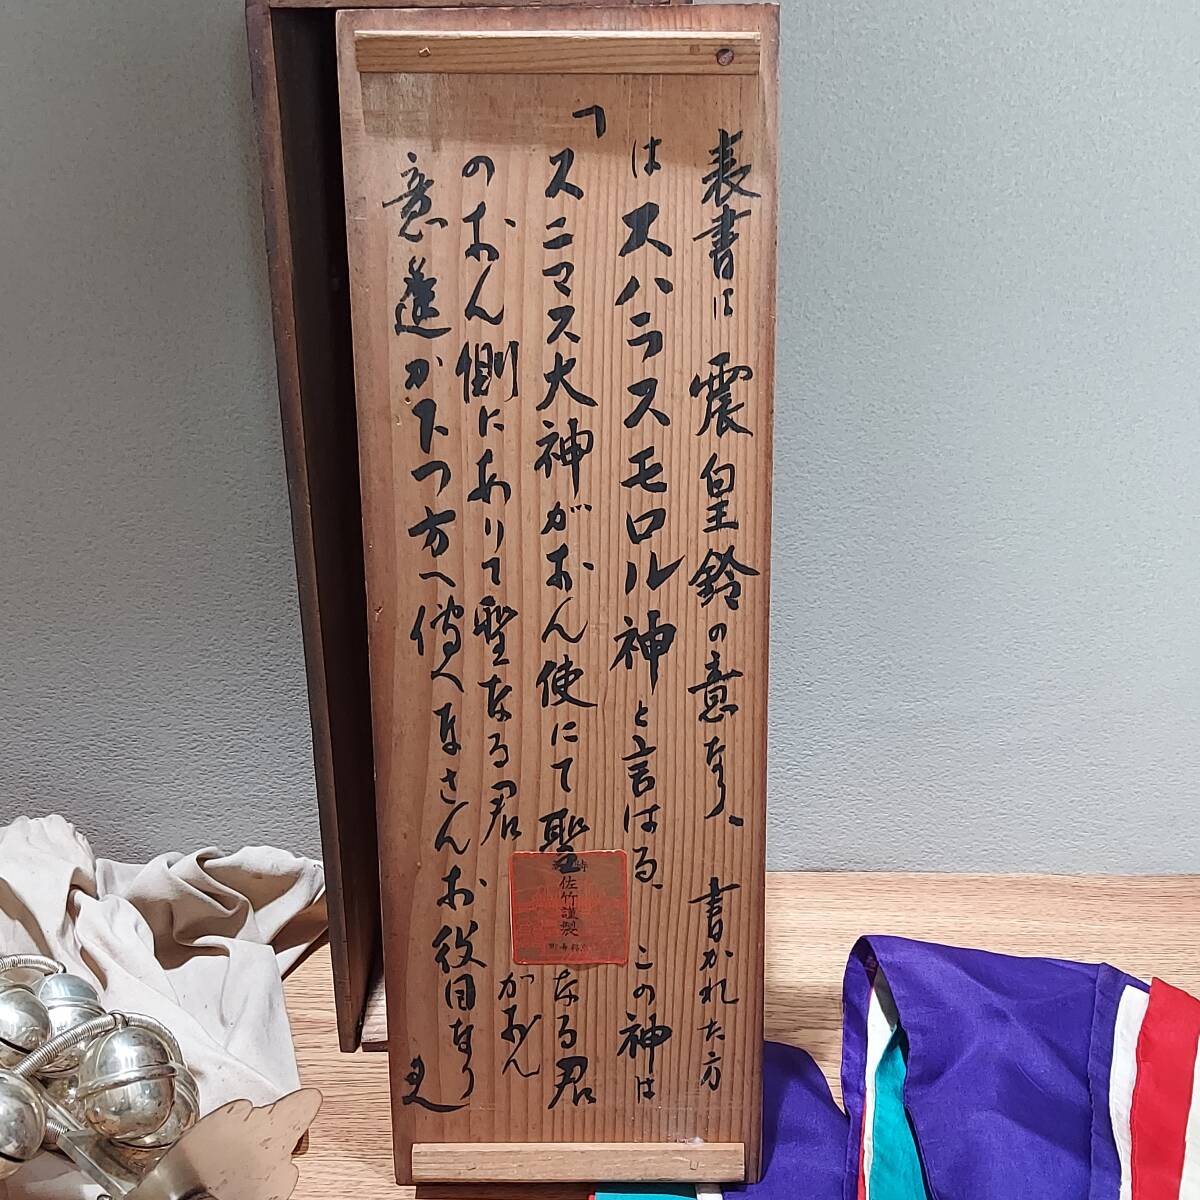 表書は 震皇鈴の意なり、書かれた方
はスハラスモロル神と言はる、この神は
「スニマス大神がおん使にて聖なる君
のおん側にありて聖なる君がおん
意遂が下つ方へ傳へなさんお役目なり
佐竹謹製